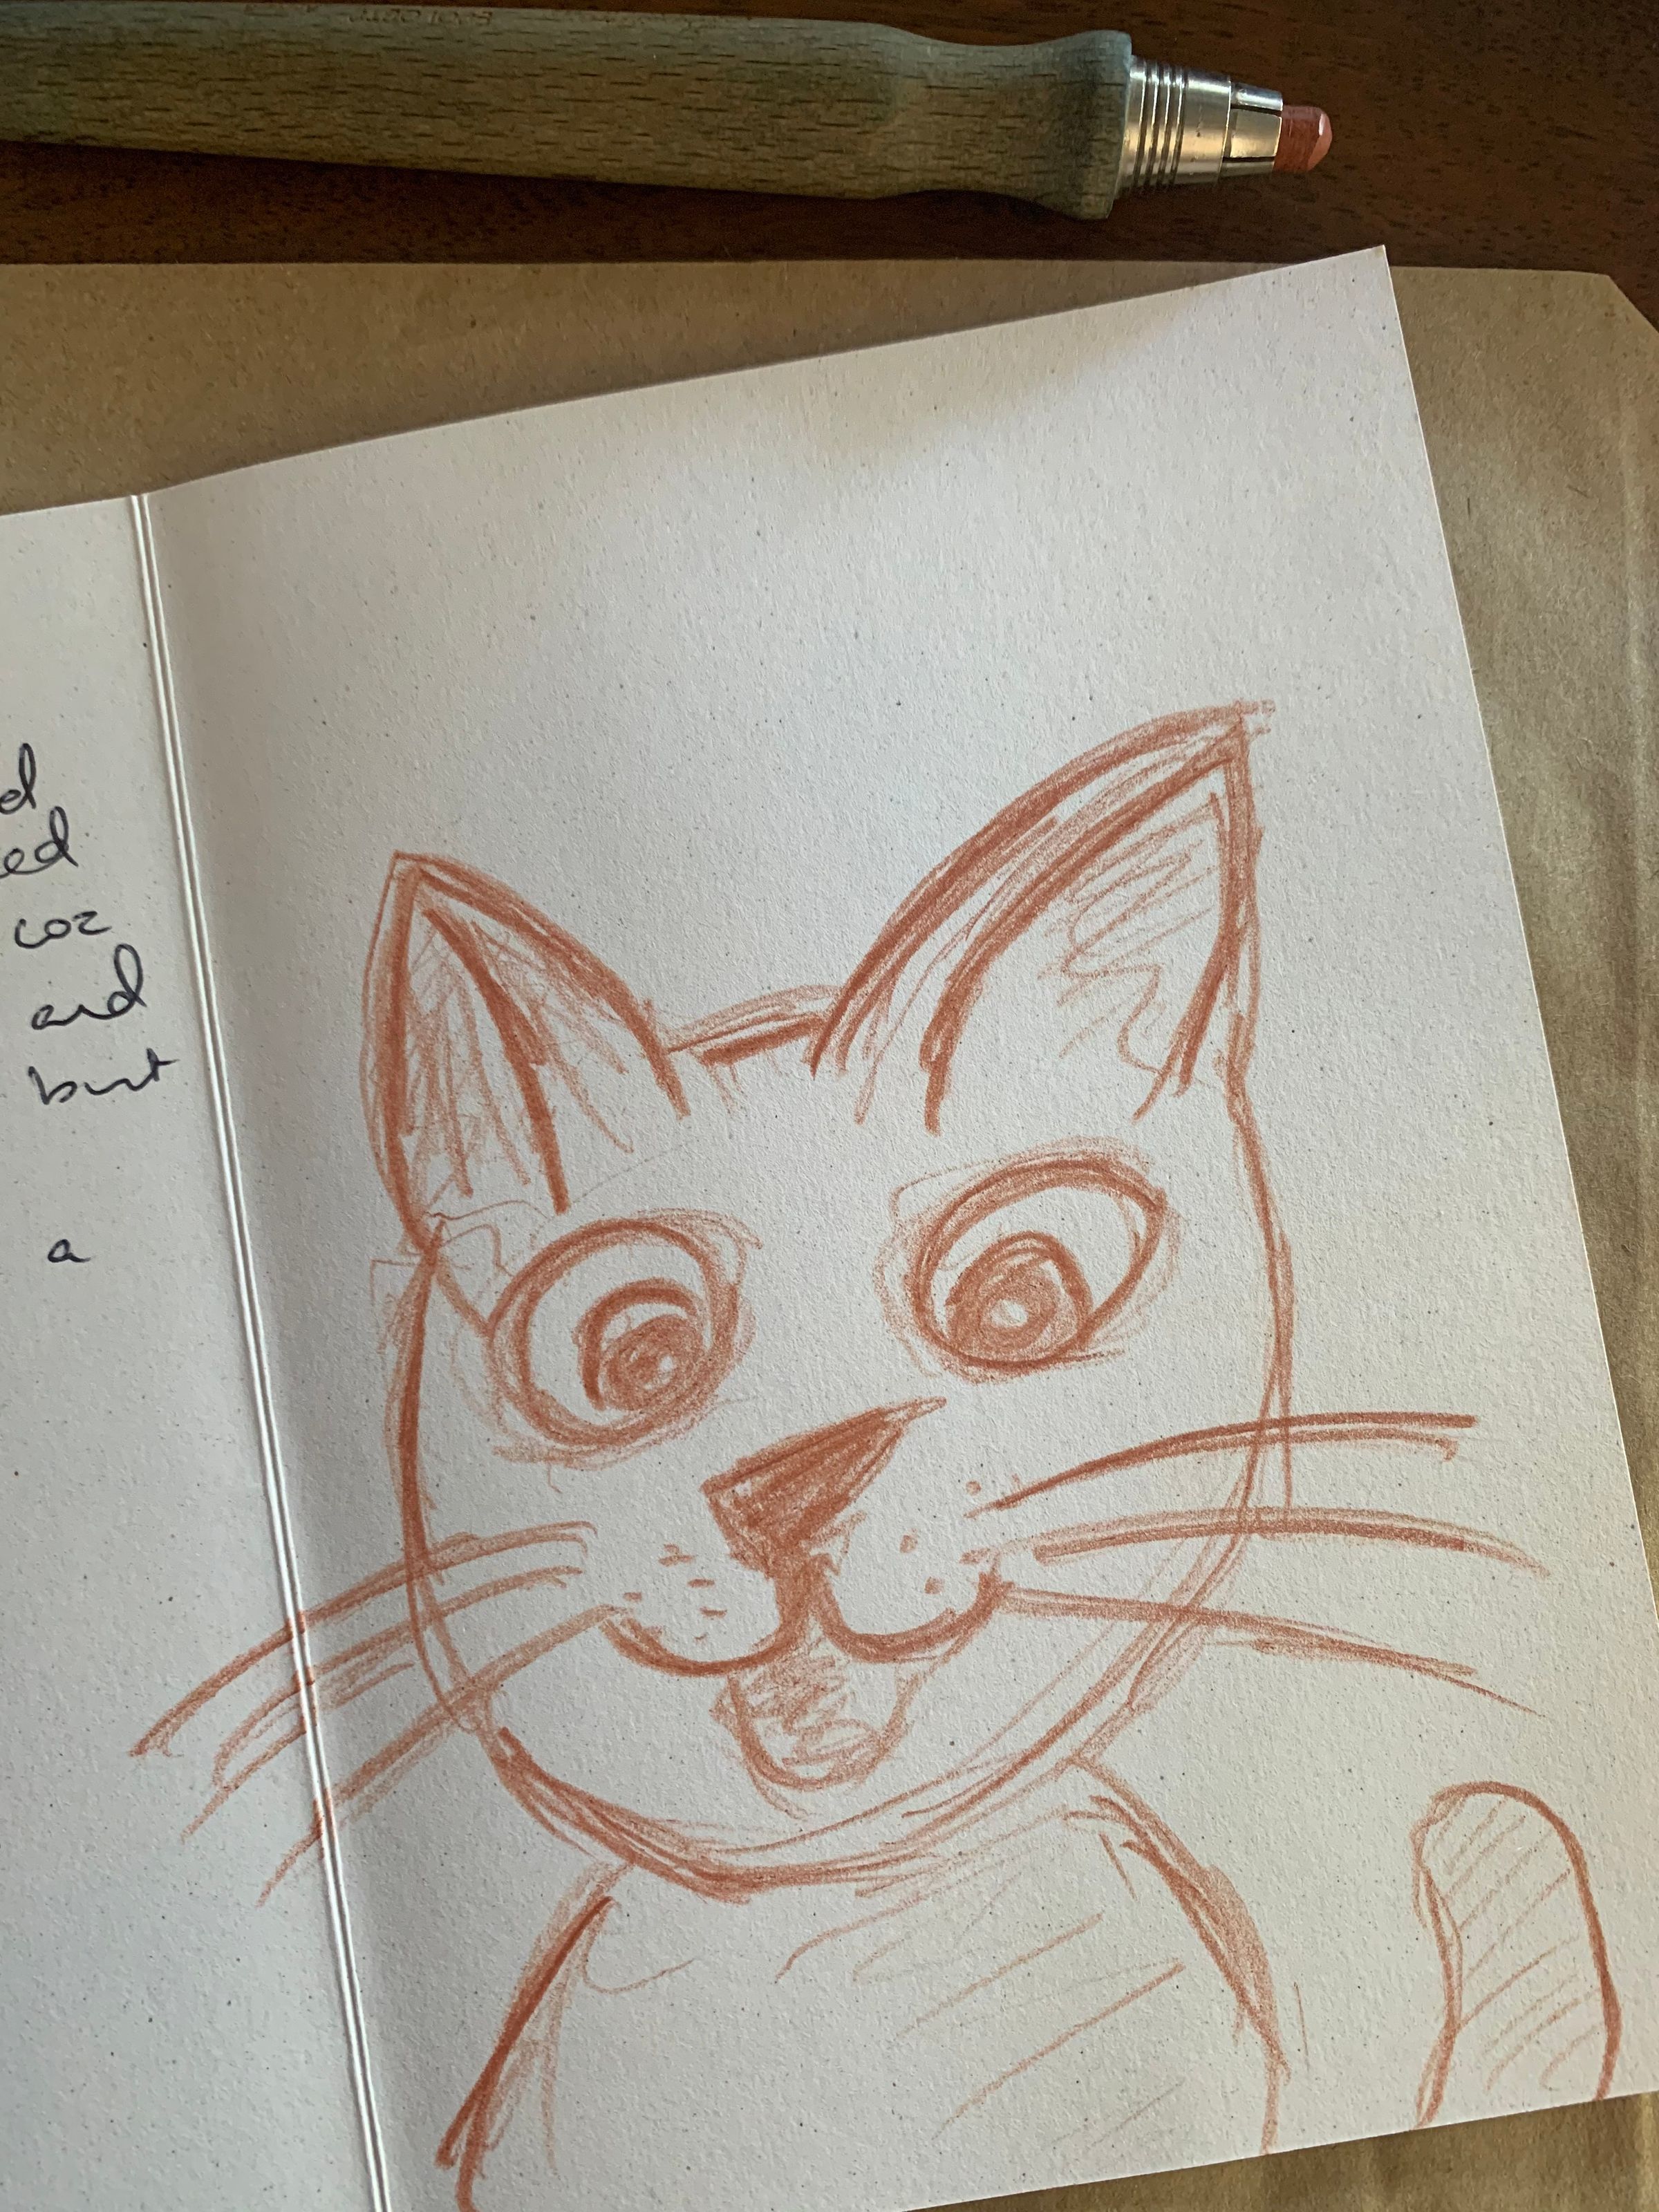 d
ed
coz
and
but
a